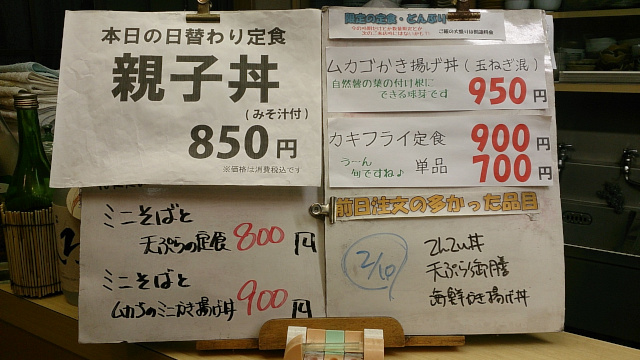 本日の日替わり定食
親子丼
(みそ汁付)
850円
※価格は消費税込です
ミニそばと
天ぷらの定食 800円
ミニそばと
ムカゴのミニかき揚げ丼 900円
限定の定食・どんぶり
ムカゴかき揚げ丼(玉ねぎ混)
自然薯の葉の付け根に
できる球芽です
950円
カキフライ定食 900円
うーん
旬ですね♪
単品 700円
前日注文の多かった品目
2/10
てんてい丼
天ぷら御膳
海鮮かき揚げ丼